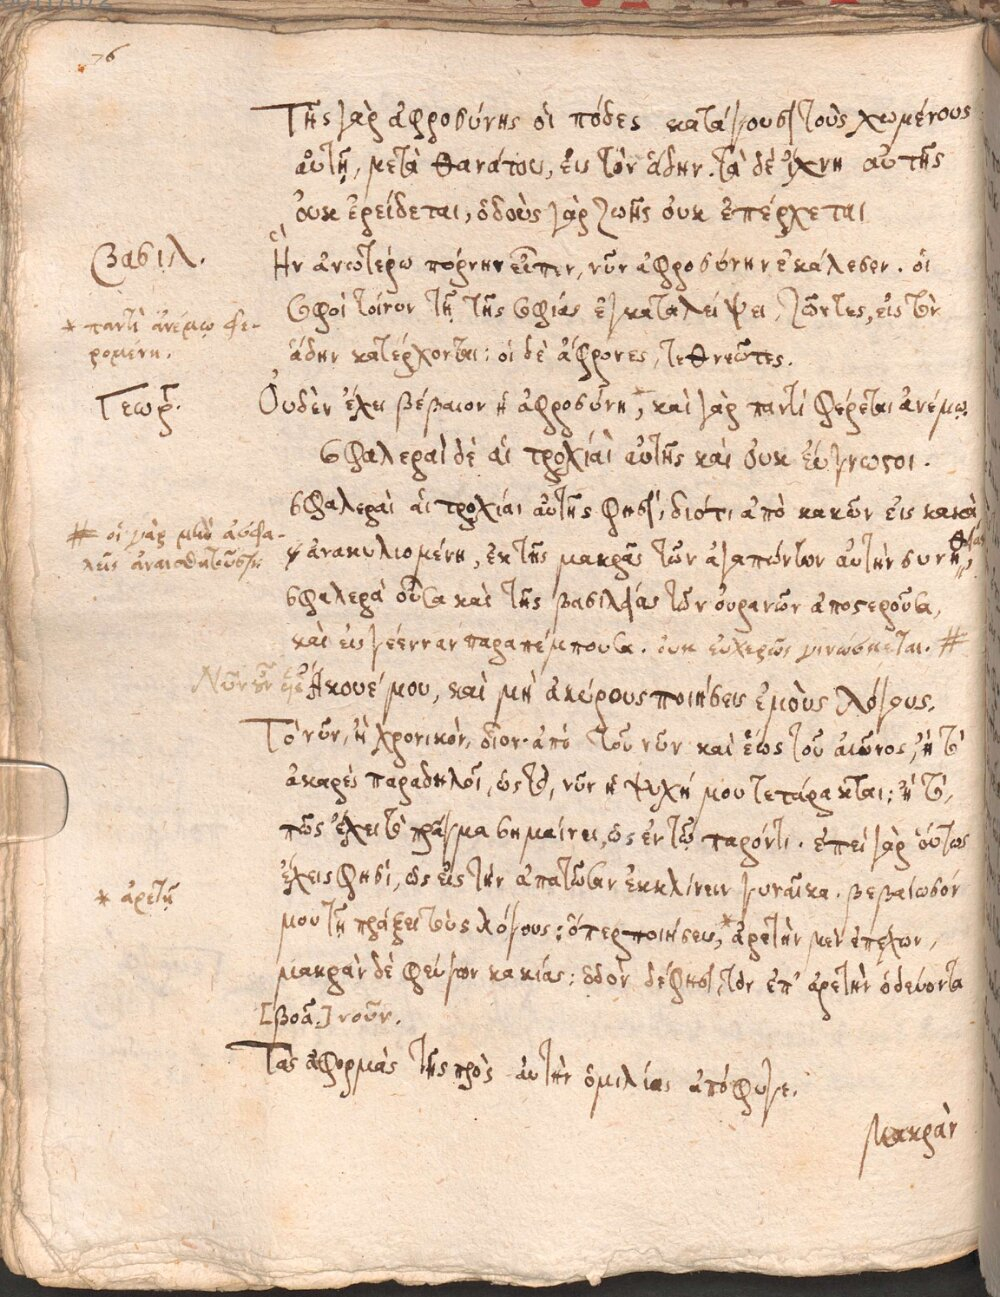 76
Τῆς γὰρ ἀφροσύνης οἱ πόδες κατάγουσι τοὺς χρωμένους
αὐτῇ, μετὰ θανάτου, εἰς τὸν ἅδην. τὰ δὲ ἴχνη αὐτῆς
οὐκ ἐρείδεται, ὁδοὺς γὰρ ζωῆς οὐκ ἐπέρχεται
Βασιλ.
Ἣν ἀνωτέρω πόρνην εἶπεν, νῦν ἀφροσύνην ἐκάλεσεν. οἱ
σοφοὶ τοίνυν τῇ τῆς σοφίας ἐγκαταλείψει, ζῶντες, εἰς τὸν
ἅδην κατέρχονται: οἱ δὲ ἄφρονες, τεθνεῶτες.
* παντὶ ἀνέμῳ φε-
ρομένη.
Γεωρ.
Οὐδὲν ἔχει βέβαιον ἡ ἀφροσύνη, * καὶ γὰρ παντὶ φέρεται ἀνέμῳ
Σφαλεραὶ δὲ αἱ τροχιαὶ αὐτῆς καὶ οὐκ εὔγνωστοι.
σφαλεραὶ αἱ τροχιαὶ αὐτῆς φησί, διότι ἀπὸ κακῶν εἰς κακὰ
ἀνακυλιομένη, ἐκ τῆς μακρᾶς τῶν ἀγαπώντων αὐτὴν συνηθείας
σφαλερὰ οὖσα καὶ τῆς βασιλείας τῶν οὐρανῶν ἀποστεροῦσα,
καὶ εἰς γέενναν παραπέμπουσα. οὐκ εὐχερῶς γινώσκεται. #
# οἱ γὰρ μὴ ἀσφα-
λεῖς ἀναισθητοῦσιν
Νῦν οὖν υἱὲ Ἄκουέ μου, καὶ μὴ ἀκύρους ποιήσεις ἐμοὺς λόγους.
Τὸ νῦν, ἢ χρονικόν, οἷον ἀπὸ τοῦ νῦν καὶ ἕως τοῦ αἰῶνος, ἢ τὸ
ἀκαρὲς παραδηλοῖ, ὡς τό, νῦν ἡ ψυχή μου τετάρακται: ἢ τὸ,
πῶς ἔχει τὸ πρᾶγμα σημαίνει, ὡς ἐν τῷ παρόντι. ἐπεὶ γὰρ οὕτως
ἔχεις φησί, ὡς εἰς τὴν ἀπατῶσαν ἐκκλίνειν γυναῖκα. βεβαίωσόν
μου τῇ πράξει τοὺς λόγους: ὅπερ ποιήσεις, * ἀρετὴν μὲν ἐπέχων,
* ἀρετῇ
μακρὰν δὲ φεύγων κακίας: ὁδὸν δέ φησι, τὸν ἐπ' ἀρετὴν ὁδεύοντα
[βοᾷ.] νοῦν.
Τὰς ἀφορμὰς τῆς πρὸς αὐτὴν ὁμιλίας ἀπόφυγε.
Μακρὰν